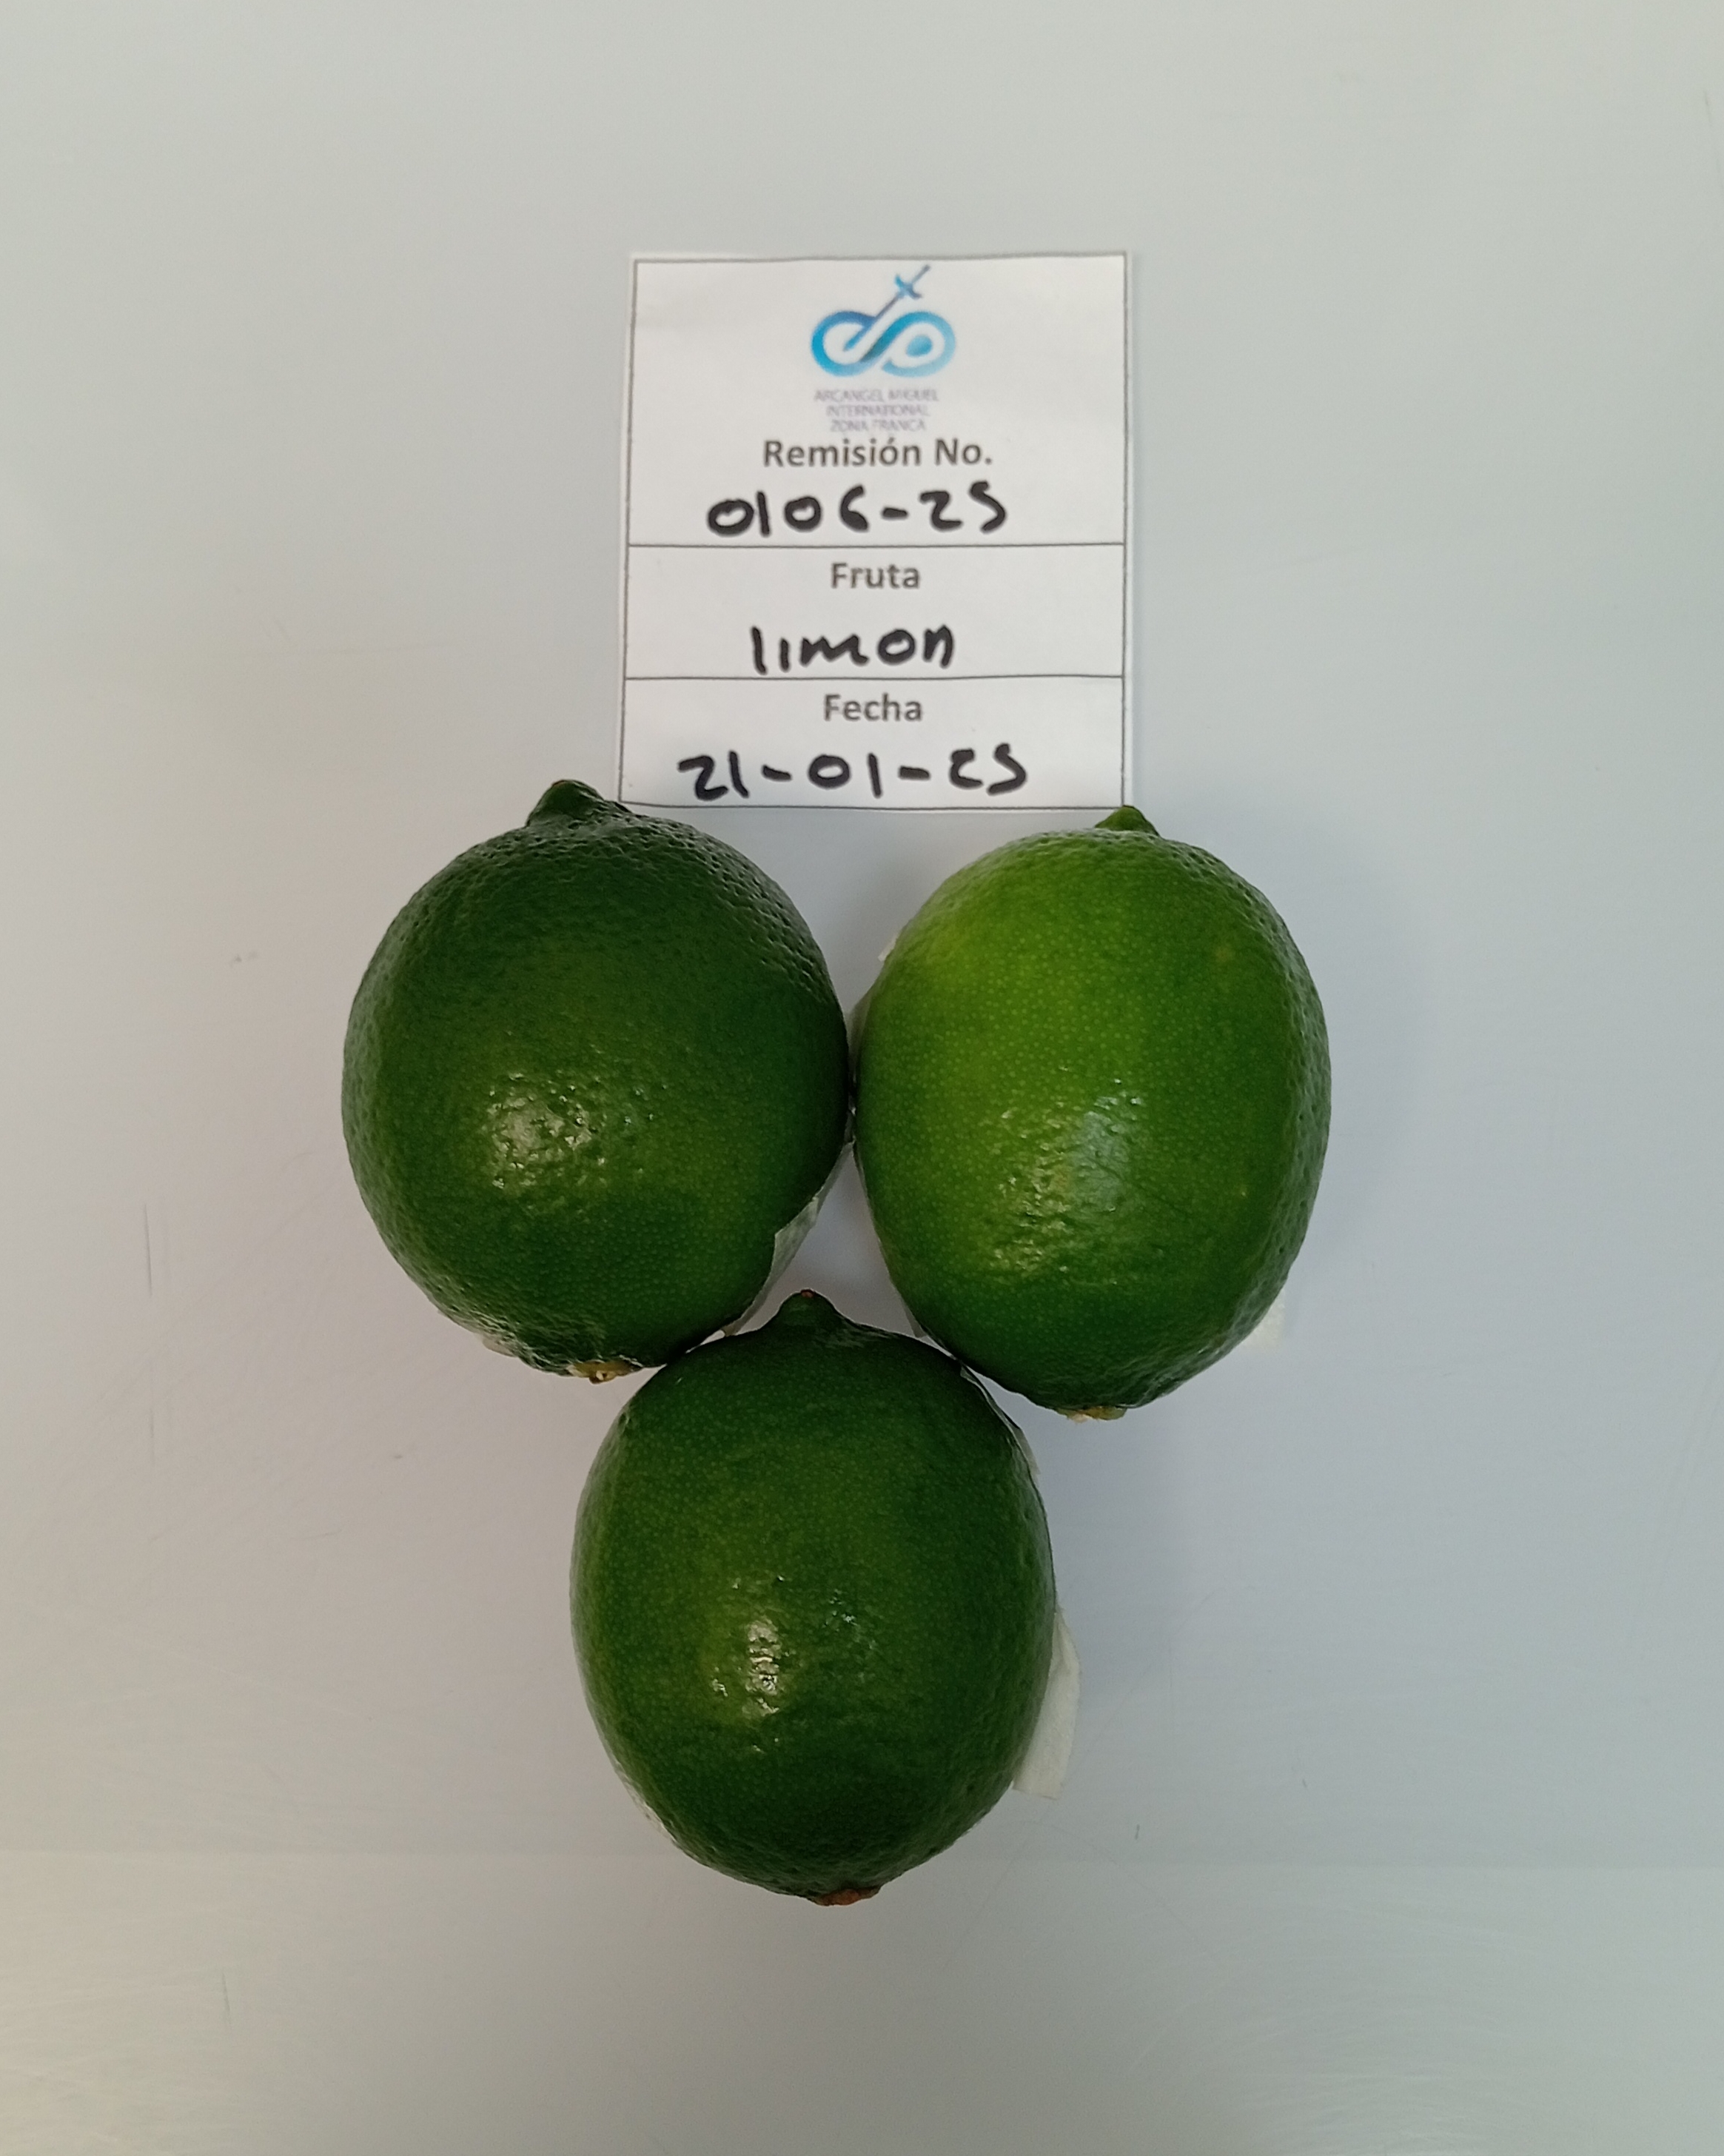 ARCANGEL MIGUEL
INTERNATIONAL
ZONA FRANCA
Remisión No.
0106-25
Fruta
limon
Fecha
21-01-25